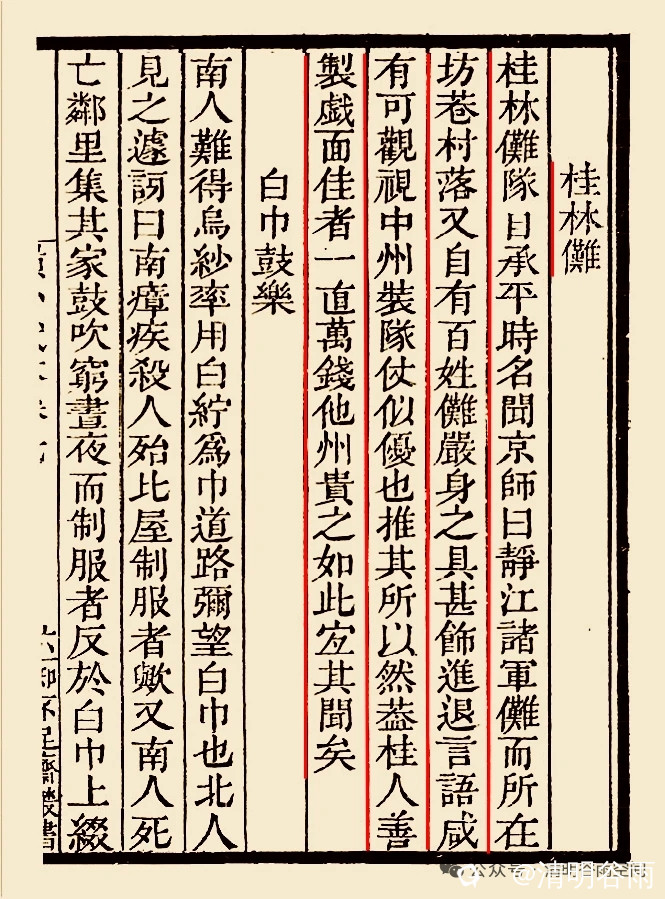 桂林儺
桂林儺隊自承平時名聞京師曰靜江諸軍儺而所在
坊巷村落又自有百姓儺嚴身之具甚飾進退言語咸
有可觀視中州裝隊仗似優也推其所以然葢桂人善
製戯面佳者一直萬錢他州貴之如此宐其聞矣
白巾鼓樂
南人難得烏紗率用白紵爲巾道路彌望白巾也北人
見之遽訝曰南瘴疾殺人殆比屋制服者歟又南人死
亡鄰里集其家鼓吹窮晝夜而制服者反於白巾上綴
知不足齋叢書
公众号·清明谷雨空间
@清明谷雨